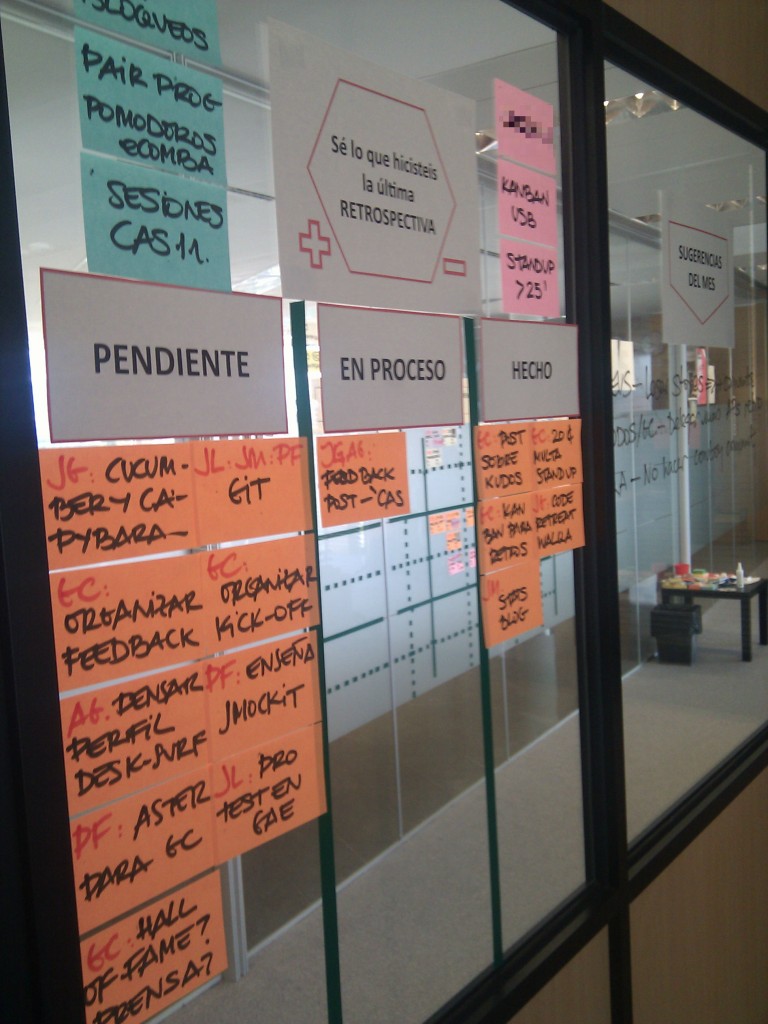 BLOQUEOS
PAIR PROG
POMODOROS
ECOMBA
SESIONES
CAS11.
Sé lo que hicisteis
la última
RETROSPECTIVA
KANBAN
USB
STANDUP
>25'
SUGERENCIAS
DEL MES
PENDIENTE
JG: CUCUM-
BER Y CA-
PYBARA-
JL: JM: PF
GIT
GC:
ORGANIZAR
FEEDBACK
GC:
ORGANIZAR
KICK-OFF
AG: PENSAR
PERFIL
DESK-SURF
PF: ENSEÑA
JMOCKIT
PF: ASTER
PARA GC
JL: PRO
TEST EN
GAE
GC: HALL
OF FAME?
PRENSA?
EN PROCESO
JG AG:
FEEDBACK
POST-CAS
HECHO
GC: POST
SOBRE
KUDOS
GC: 20 €
MULTA
STAND UP
GC: KAN
BAN PARA
RETROS
JG: CODE
RETREAT
WALLA
JM
STATS
BLOG